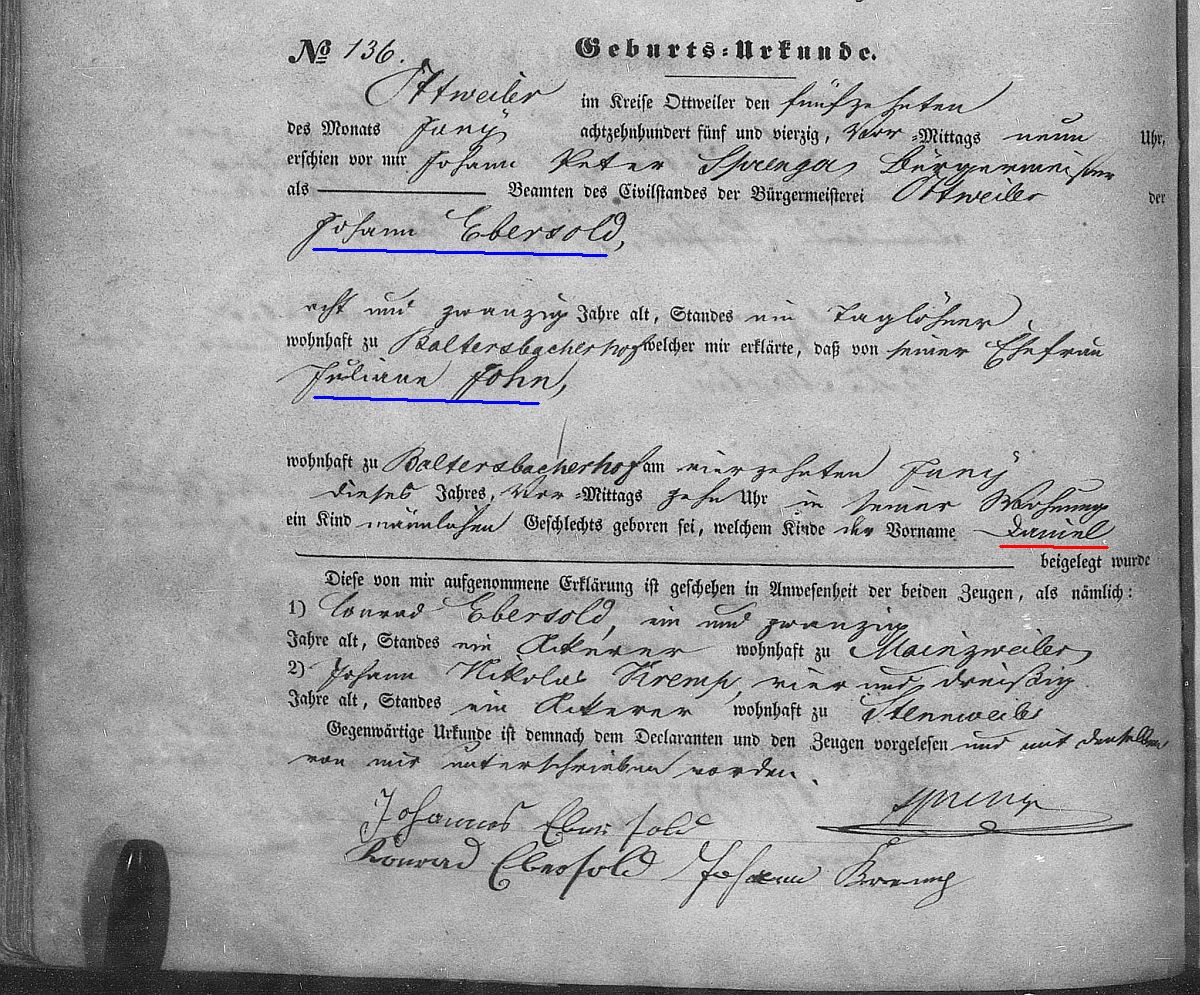 № 136. Geburts-Urkunde.
Ottweiler im Kreise Ottweiler den fünfzehnten
des Monats Juny achtzehnhundert fünf und vierzig, Vor-Mittags neun Uhr,
erschien vor mir Johann Peter Bürgermeister
als Beamten des Civilstandes der Bürgermeisterei Ottweiler der
Johann Ebersold,
acht und zwanzig Jahre alt, Standes ein Taglöhner
wohnhaft zu Baltersbacherhof welcher mir erklärte, daß von seiner Ehefrau
Juliane John,
wohnhaft zu Baltersbacherhof am vierzehnten Juny
dieses Jahres, Vor-Mittags zehn Uhr in seiner Wohnung
ein Kind männlichen Geschlechts geboren sei, welchem Kinde der Vorname Daniel
beigelegt wurde
Diese von mir aufgenommene Erklärung ist geschehen in Anwesenheit der beiden Zeugen, als nämlich:
1) Conrad Ebersold, ein und zwanzig
Jahre alt, Standes ein Ackerer wohnhaft zu Mainzweiler
2) Johann Nikolas Kremp, vier und dreißig
Jahre alt, Standes ein Ackerer wohnhaft zu Stennweiler
Gegenwärtige Urkunde ist demnach dem Declaranten und den Zeugen vorgelesen und mit denselben
von mir unterschrieben worden.
Johannes Ebersold
Konrad Ebersold Johann Kremp